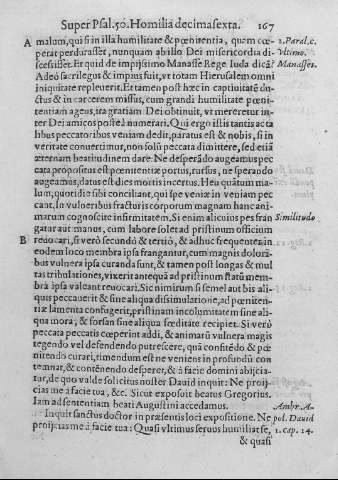 Super Psal. 50. Homilia decimasexta. 167
A malum, qui si in illa humilitate & pœnitentia, quam cœ- 1. Paral. c.
perat perdurasset, nunquam ab illo Dei misericordia di- vltimo.
scessisset. Et quid de impijssimo Manasse Rege Iuda dicã? Manasses.
Adeò sacrilegus & impius fuit, vt totam Hierusalem omni
iniquitate repleuerit. Et tamen post hæc in captiuitatẽ du-
ctus & in carcerem missus, cum grandi humilitate pœni-
tentiam agens, ita gratiam Dei obtinuit, vt mereretur in-
ter Dei amicos postea numerari. Qui ergo istis tantis acta
libus peccatoribus veniam dedit, paratus est & nobis, si in
veritate conuertimur, non solũ peccata dimittere, sed etiã
æternam beatitudinem dare. Ne desperãdo augeamus pec
cata propositus est pœnitentiæ portus, rursus, ne sperando
augeamus, datus est dies mortis incertus. Heu quãtum ma-
lum, quotidie sibi conciliant, qui spe veniæ in veniam pec
cant. In vulneribus fracturis corporum magnam hanc ani-
marum cognoscite infirmitatem. Si enim alicuius pes fran Similitudo
gatur aut manus, cum labore solet ad pristinum officium
B reuocari, si verò secundò & tertiò, & adhuc frequenter in
eodem loco membra ipsa frangantur, cum magnis dolori-
bus vulnera ipsa curanda sunt, & tamen post longas & mul
tas tribulationes, vix erit antequã ad pristinum statũ mem-
bra ipsa valeant reuocari. Sic nimirum si semel aut bis ali-
quis peccauerit & sine aliqua dissimulatione, ad pœniten-
tiæ lamenta confugerit, pristinam incolumitatem sine ali-
qua mora, & forsan sine aliqua fœditate recipiet. Si verò
peccata peccatis cœperint addi, & animarũ vulnera magis
tegendo vel defendendo putrescere, quã confitẽdo & pœ
nitendo curari, timendum est ne veniens in profundũ con
temnat, & contẽnendo desperet, & à facie domini abijcia-
tur, de quo valde solicitus noster Dauid inquit: Ne proij-
cias me à facie tua, &c. Sicut exposuit beatus Gregorius.
Iam ad sententiam beati Augustini accedamus. Ambr. A-
Inquit sanctus doctor in præsentis loci expositione. Ne pol. Dauid
proijcias me à facie tua: Quasi vltimus seruus humiliat se, 1. cap. 14.
& quasi